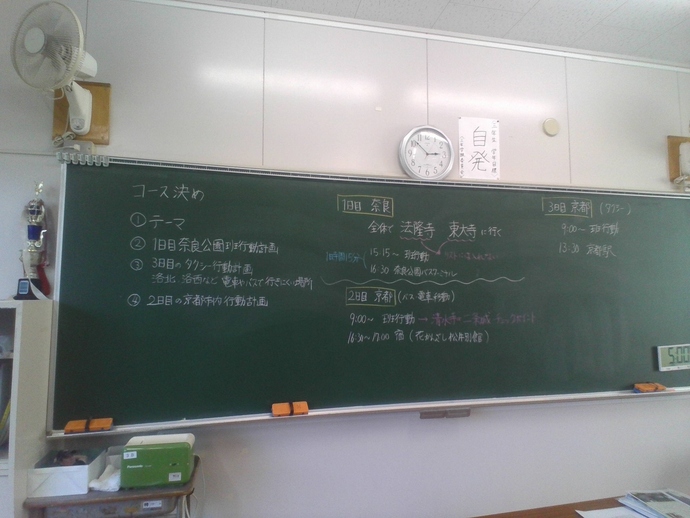 自発
コース決め
① テーマ
② 1日目奈良公園班行動計画
③ 3日目のタクシー行動計画
洛北、洛西など電車やバスで行きにくい場所
④ 2日目の京都市内行動計画
1日目 奈良
全体で 法隆寺 東大寺 に行く
1時間15分
15:15～ 班行動
16:30 奈良公園バスターミナル
2日目 京都 (バス 電車移動)
9:00～ 班行動 → 清水寺か二条城 チェックポイント
16:30～17:00 宿 (花かんざし松井別館)
3日目 京都 (タクシー)
9:00～ 班行動
13:30 京都駅
5:00
Panasonic